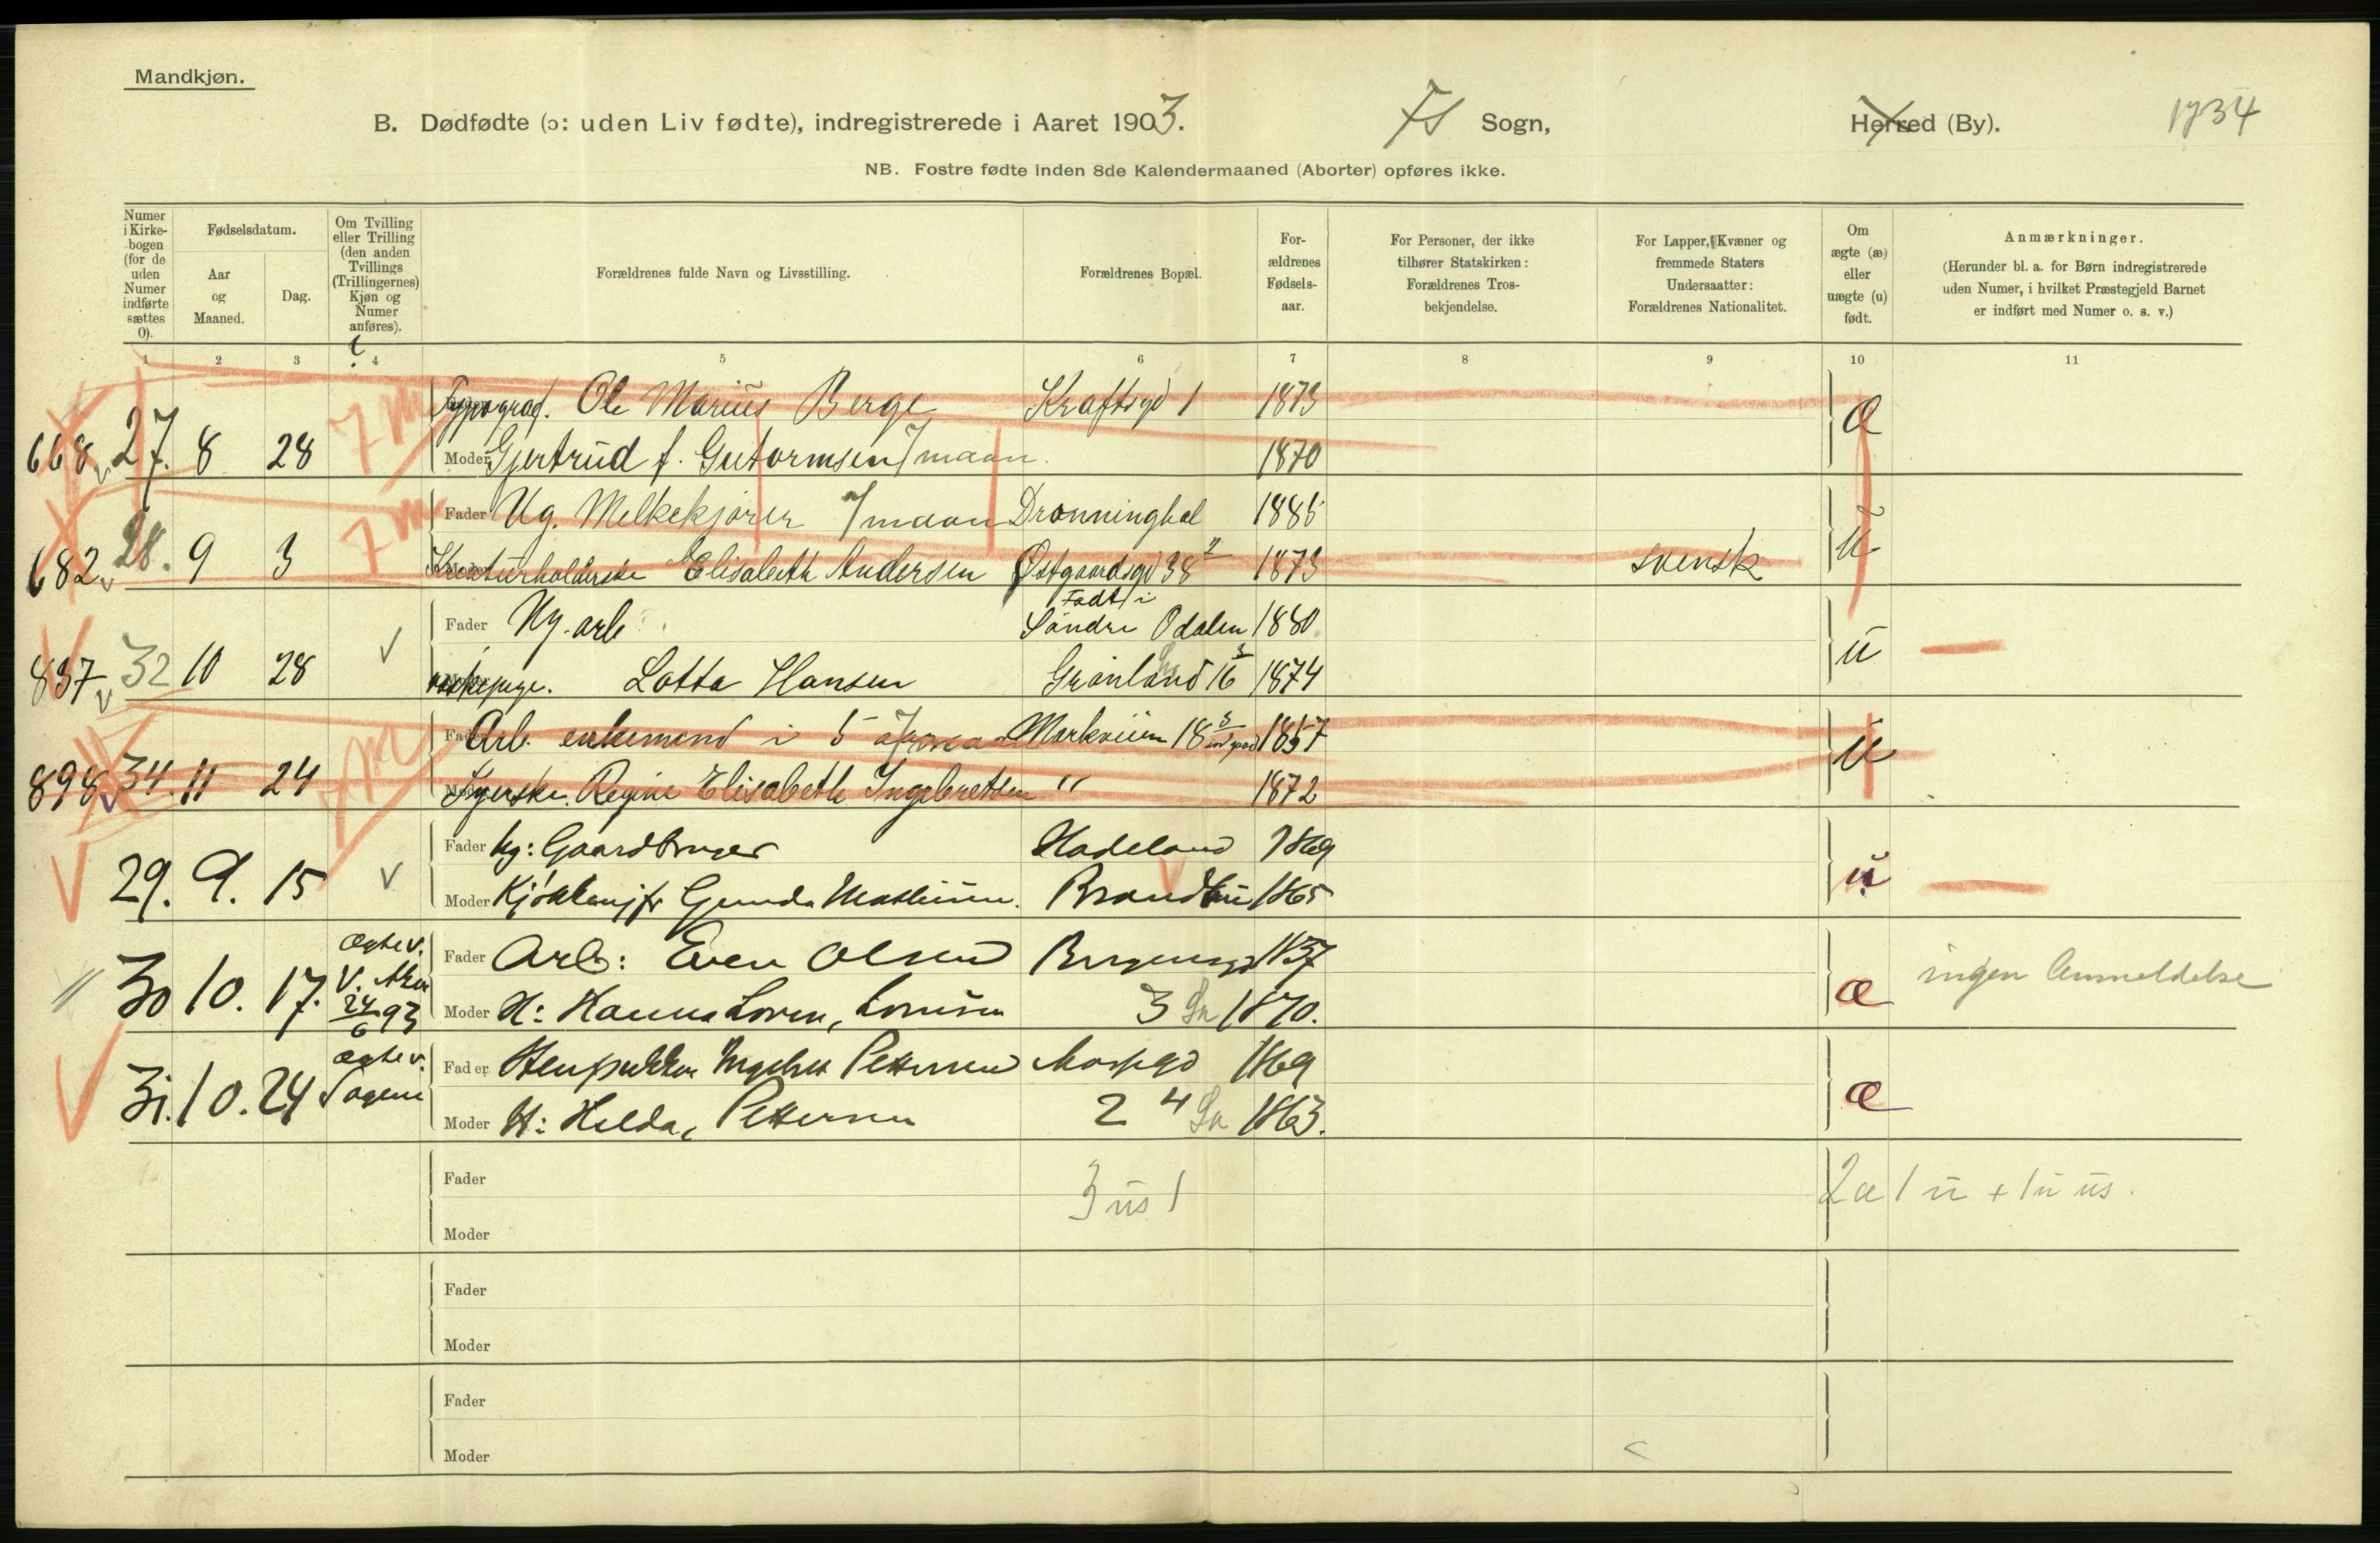 Mandkjøn.
B. Dødfødte (ɔ: uden Liv fødte), indregistrerede i Aaret 1903. Sogn, Herred (By). 1734
NB. Fostre fødte inden 8de Kalendermaaned (Aborter) opføres ikke.
Numer i Kirke-bogen (for de uden Numer indførte sættes 0).
Fødselsdatum.
Aar og Maaned.
Dag.
Om Tvilling eller Trilling (den anden Tvillings (Trillingernes) Kjøn og Numer anføres).
Forældrenes fulde Navn og Livsstilling.
Forældrenes Bopæl.
For-ældrenes Fødsels-aar.
For Personer, der ikke tilhører Statskirken: Forældrenes Tros-bekjendelse.
For Lapper, Kvæner og fremmede Staters Undersaatter: Forældrenes Nationalitet.
Om ægte (æ) eller uægte (u) født.
Anmærkninger.
(Herunder bl. a. for Børn indregistrerede uden Numer, i hvilket Præstegjeld Barnet er indført med Numer o. s. v.)
1 2 3 4 5 6 7 8 9 10 11
Fader Typograf. Ole Marius Berge Kraftsgd 1 1873
668 27. 8 28 7 m Moder Gjertrud f. Gutormsen 7 maan. 1870 æ
Fader Ug. Melkekjører 7 maan Dronninghal 1885
682 28. 9 3 7 m Moder Elisabeth Andersen Østgaardsgd 38 1873 svensk u
Fader Ug. arb Født i Søndre Odalen 1880
837 32 10 28 Moder Lotta Hansen Grønland 16 1874 u
Fader Arb. enkemand i 5 Markveien 18 1857
898 34. 11 24 Moder Syerske. Regine Elisabeth Ingebretsen " 1872 u
Fader Ug: Gaardbruger Hadeland 1869
29. 9. 15 Moder Gunda Brandbu 1865 u
Fader Arb: Even Olsen 1837
30 10. 17. 24/6 93 Moder H: Hanna 3 1870. æ ingen Anmeldelse
Fader Pettersen 1869
31. 10. 24 Sagene Moder H: Hilda, Pettersen 2 4 1863. æ
Fader
Moder
3 us 1
2 æ 1 u + 1 u us.
Fader
Moder
Fader
Moder